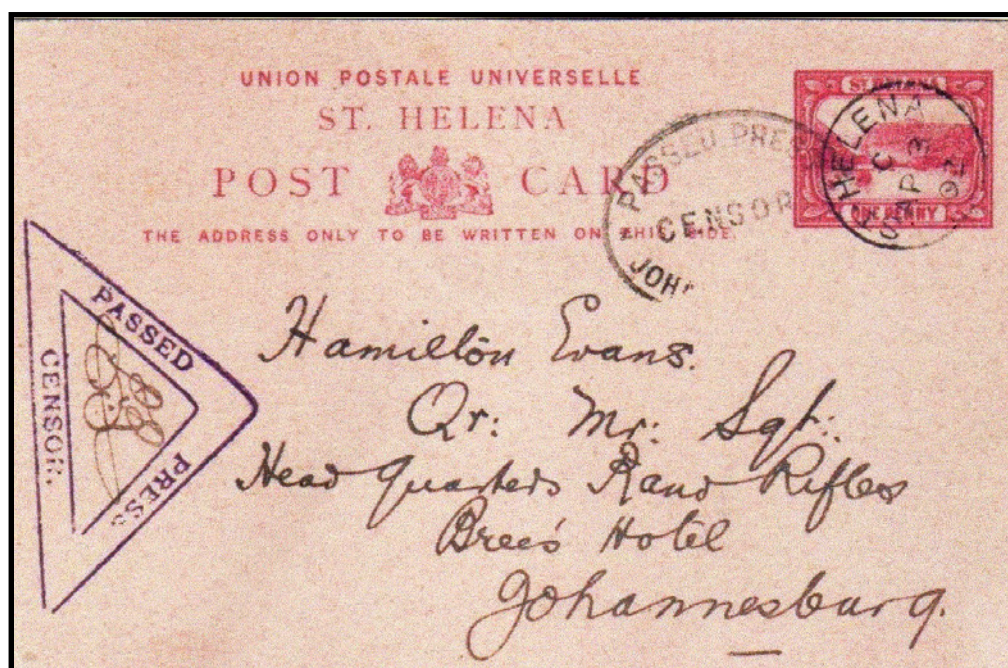 UNION POSTALE UNIVERSELLE
ST. HELENA
POST CARD
THE ADDRESS ONLY TO BE WRITTEN ON THIS SIDE.
ST. HELENA
ONE PENNY
HELENA
C
AP 3
PASSED PRE
CENSOR
JOH
PASSED
PRESS
CENSOR.
Hamilton Evans.
Qr: Mr: Sgt:.
Head Quarters Rand Rifles
Bree's Hotel
Johannesburg.